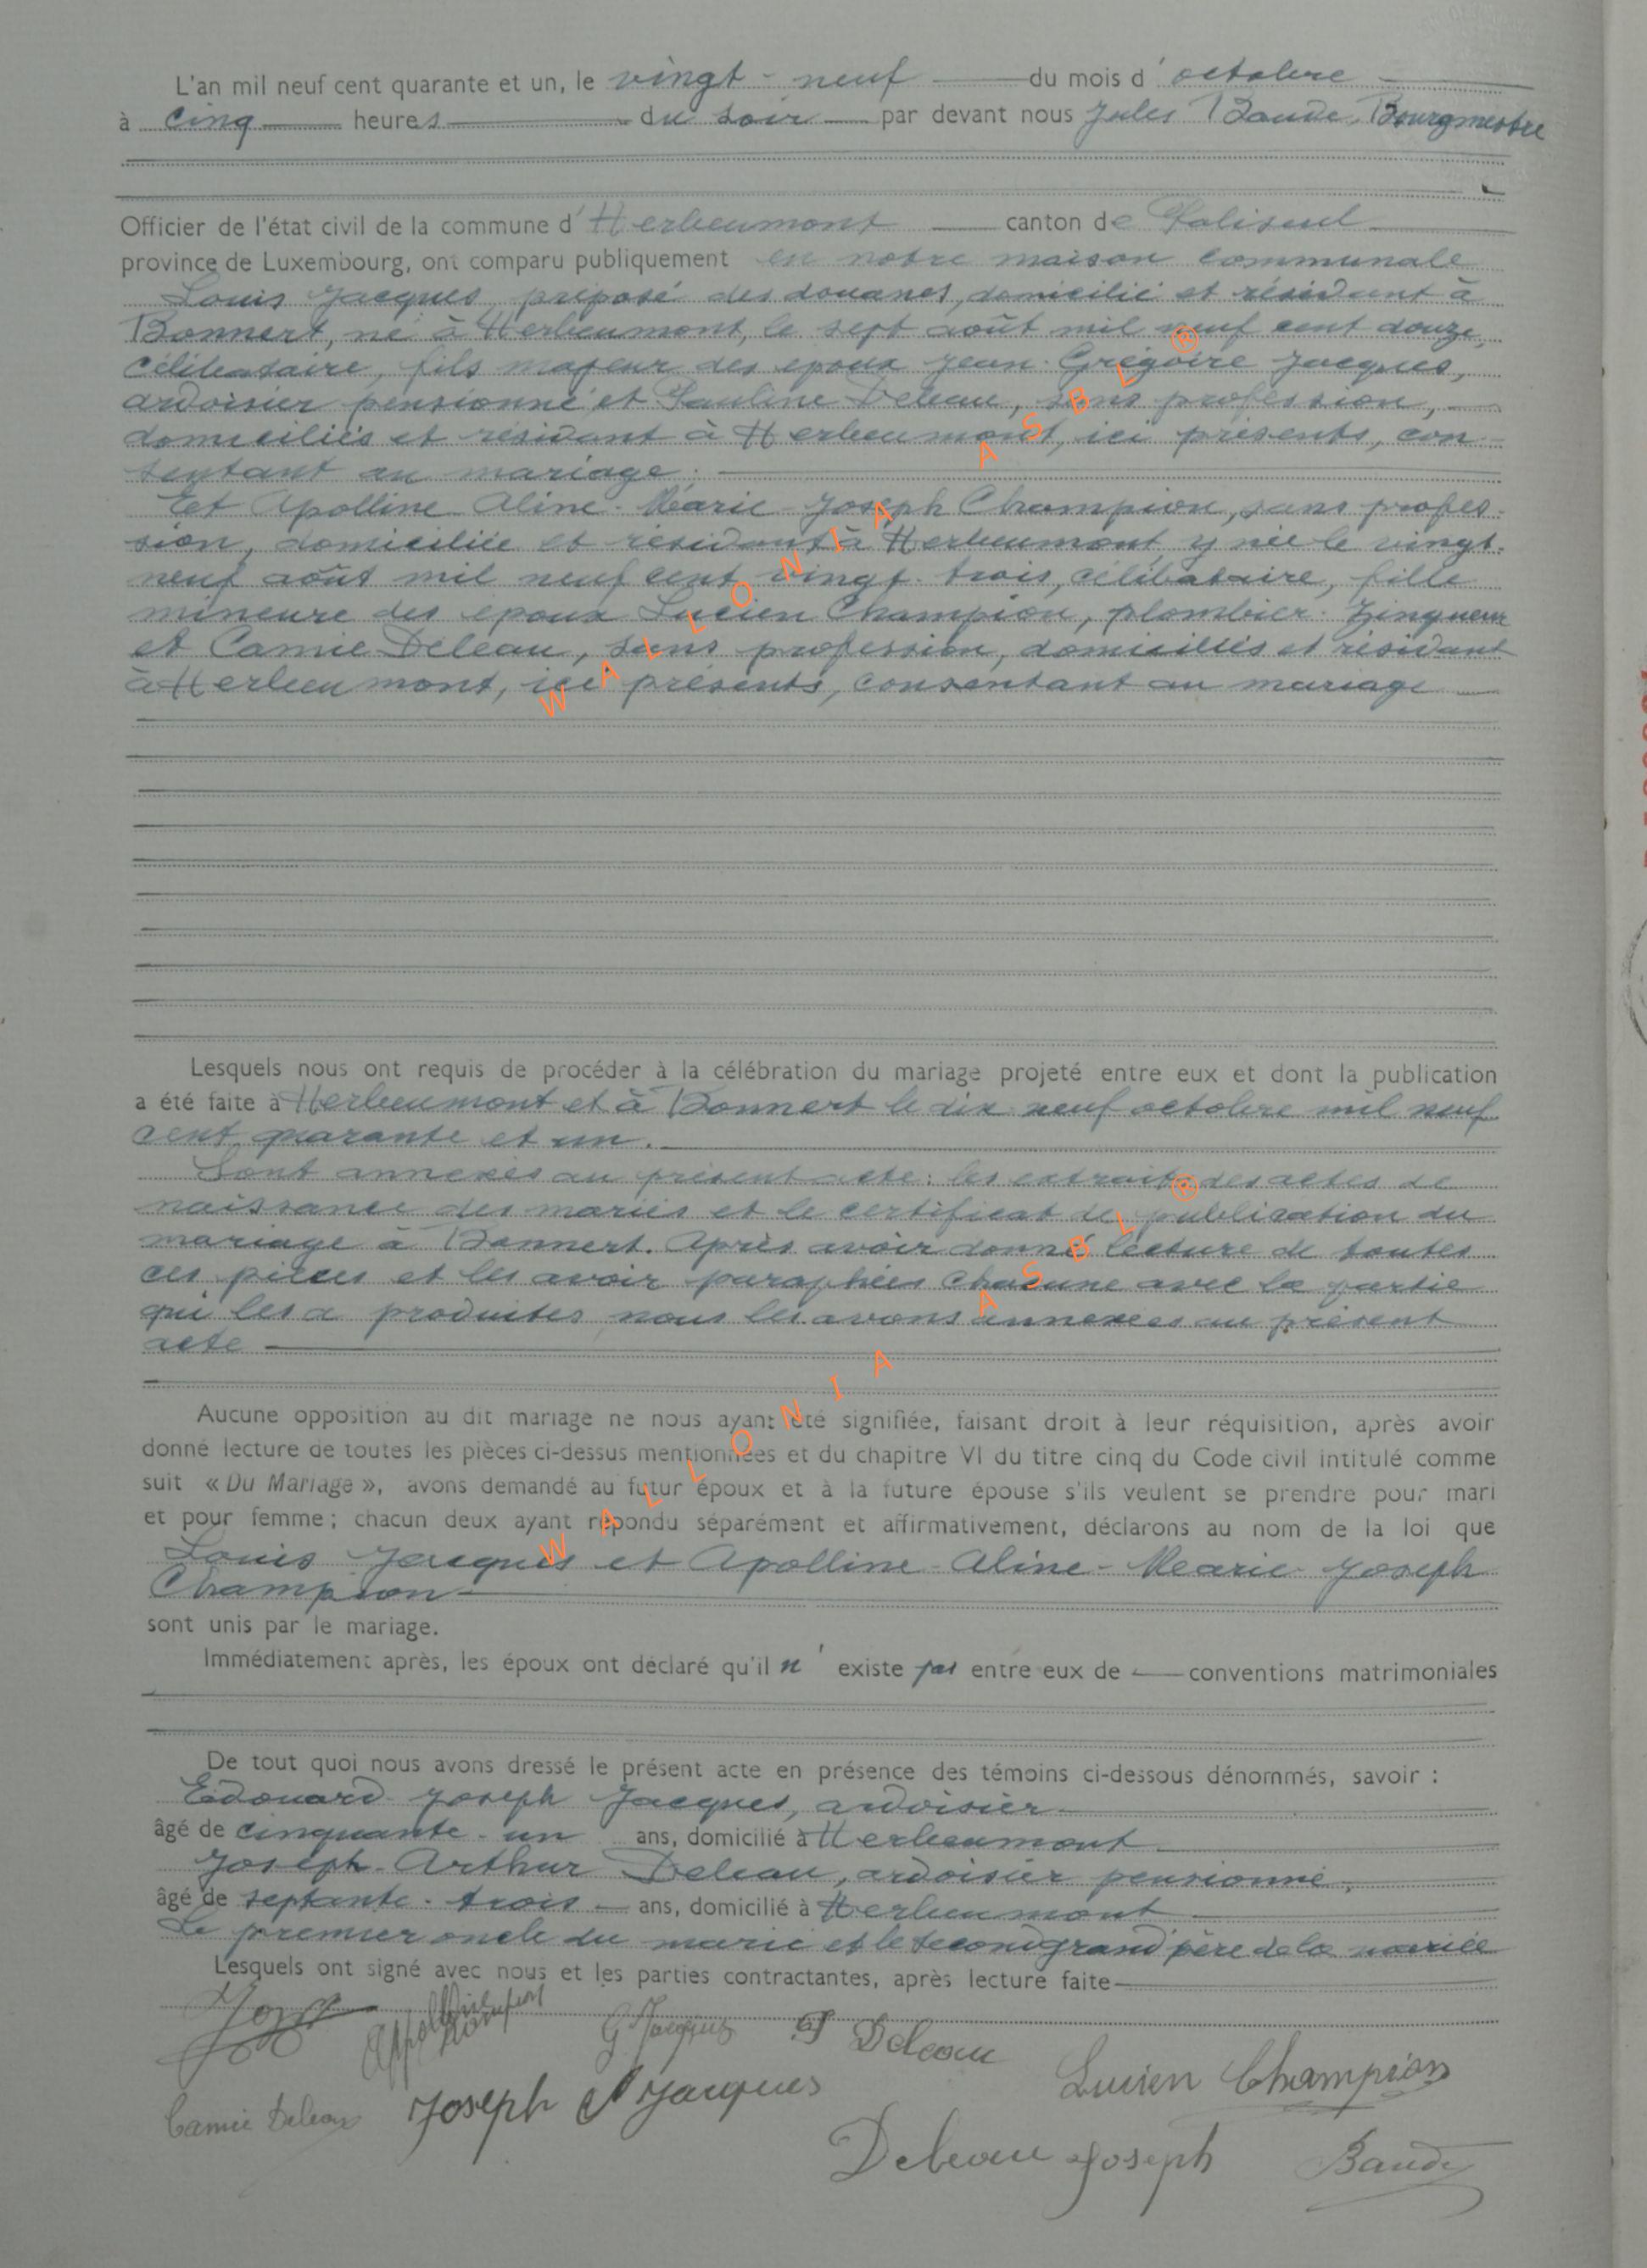 L'an mil neuf cent quarante et un, le vingt-neuf du mois d'octobre
à cinq heures du soir par devant nous Jules Baude, Bourgmestre
Officier de l'état civil de la commune d'Herbeumont canton de Paliseul
province de Luxembourg, ont comparu publiquement en notre maison communale
Louis Jacques, préposé des douanes, domicilié et résidant à
Bonnert, né à Herbeumont, le sept août mil neuf cent douze,
célibataire, fils majeur des époux Jean-Grégoire Jacques,
ardoisier pensionné et Pauline Deleau, sans profession,
domiciliés et résidant à Herbeumont, ici présents, con-
sentant au mariage.
Et Apolline-Aline-Marie-Joseph Champion, sans profes-
sion, domiciliée et résidant à Herbeumont, y née le vingt-
neuf août mil neuf cent vingt-trois, célibataire, fille
mineure des époux Lucien Champion, plombier-zingueur
et Camie Deleau, sans profession, domiciliés et résidant
à Herbeumont, ici présents, consentant au mariage
Lesquels nous ont requis de procéder à la célébration du mariage projeté entre eux et dont la publication
a été faite à Herbeumont et à Bonnert le dix-neuf octobre mil neuf
cent quarante et un.
Sont annexés au présent acte: les extraits des actes de
naissance des mariés et le certificat de publication du
mariage à Bonnert. Après avoir donné lecture de toutes
ces pièces et les avoir paraphées chacune avec la partie
qui les a produites, nous les avons annexées au présent
acte
Aucune opposition au dit mariage ne nous ayant été signifiée, faisant droit à leur réquisition, après avoir
donné lecture de toutes les pièces ci-dessus mentionnées et du chapitre VI du titre cinq du Code civil intitulé comme
suit « Du Mariage », avons demandé au futur époux et à la future épouse s'ils veulent se prendre pour mari
et pour femme; chacun deux ayant répondu séparément et affirmativement, déclarons au nom de la loi que
Louis Jacques et Apolline-Aline-Marie-Joseph
Champion
sont unis par le mariage.
Immédiatement après, les époux ont déclaré qu'il n'existe pas entre eux de conventions matrimoniales
De tout quoi nous avons dressé le présent acte en présence des témoins ci-dessous dénommés, savoir :
Edouard-Joseph Jacques, ardoisier
âgé de cinquante-un ans, domicilié à Herbeumont
Joseph-Arthur Deleau, ardoisier pensionné,
âgé de septante-trois ans, domicilié à Herbeumont
Le premier oncle du marié et le second grand'père de la mariée
Lesquels ont signé avec nous et les parties contractantes, après lecture faite
Apolline Champion
G Jacques Deleau
Lucien Champion
Camie Deleau Joseph Jacques
Deleau Joseph Baude
WALLONIA ASBL ®
WALLONIA ASBL ®